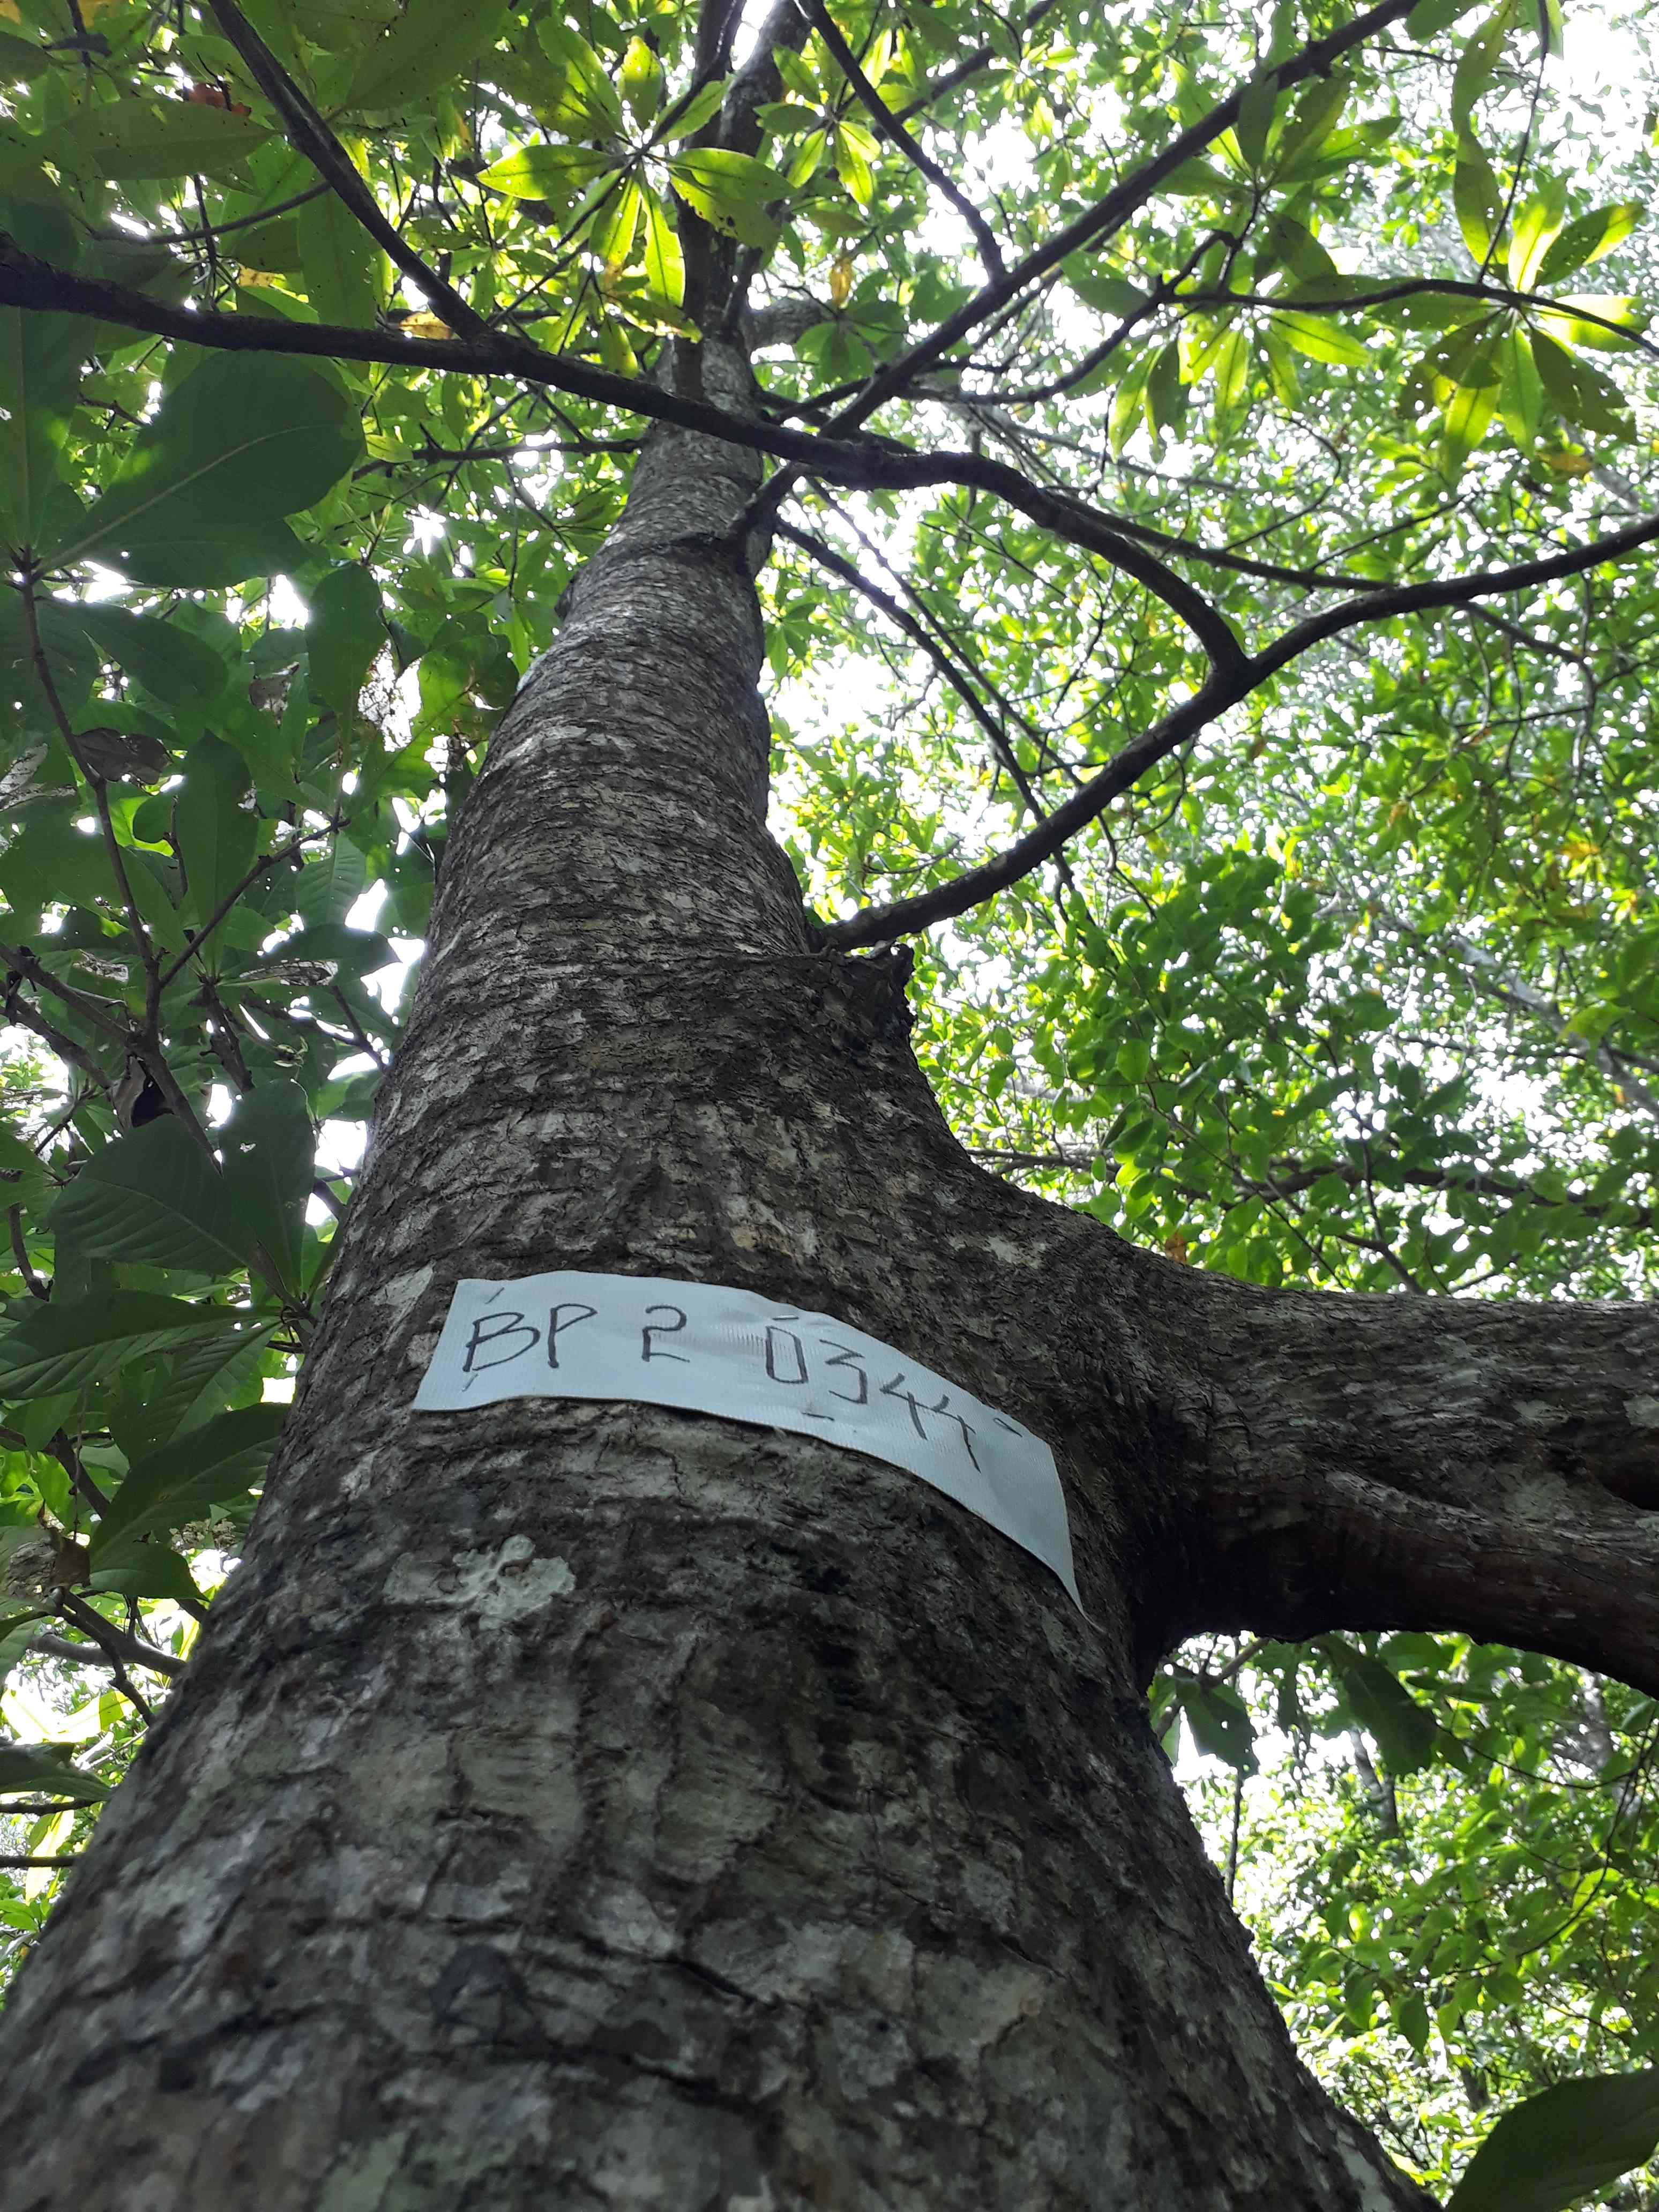 BP 2 0344